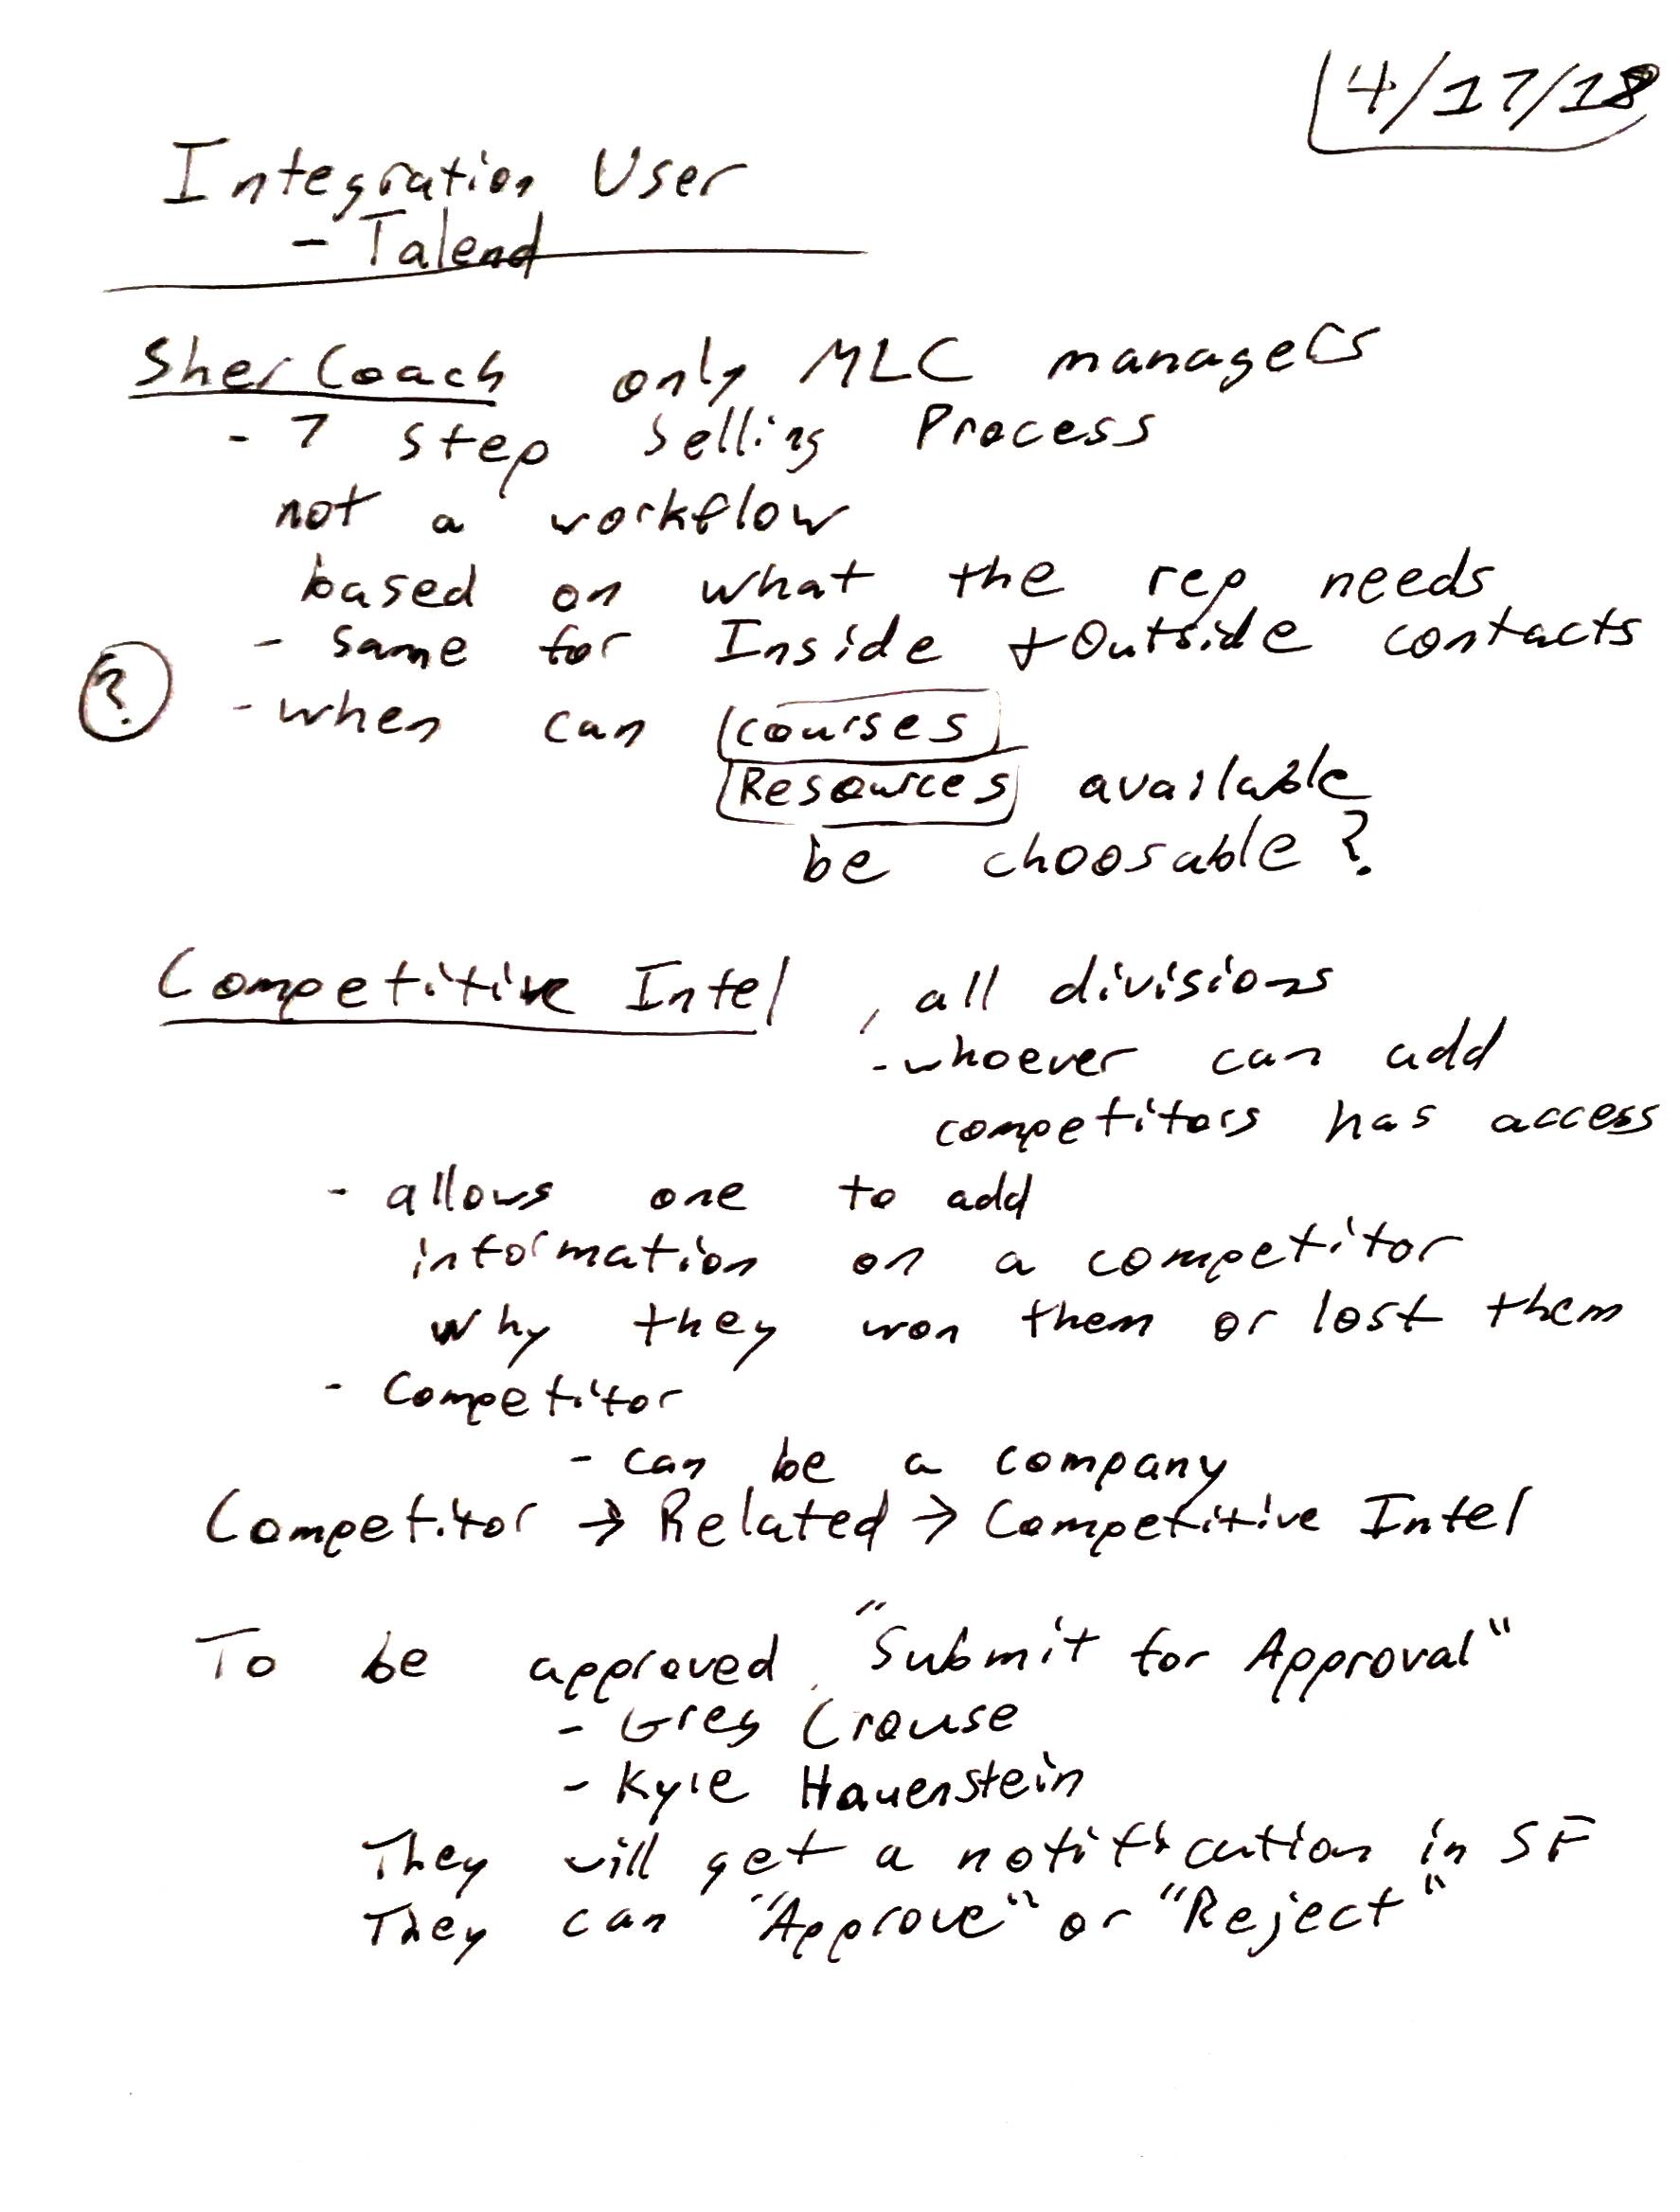 4/17/18
Integration User
- Talend
SherCoach only MLC managers
- 7 step Selling Process
not a workflow
based on what the rep needs
- same for Inside + Outside contacts
? - when can courses
Resources available
be choosable?
Competitive Intel, all divisions
- whoever can add
competitors has access
- allows one to add
information on a competitor
why they won them or lost them
- Competitor
- can be a company
Competitor → Related → Competitive Intel
To be approved "Submit for Approval"
- Greg Crouse
- Kyle Hauenstein
They will get a notification in SF
They can "Approve" or "Reject"